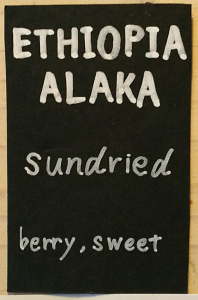 ETHIOPIA
ALAKA
sundried
berry, sweet